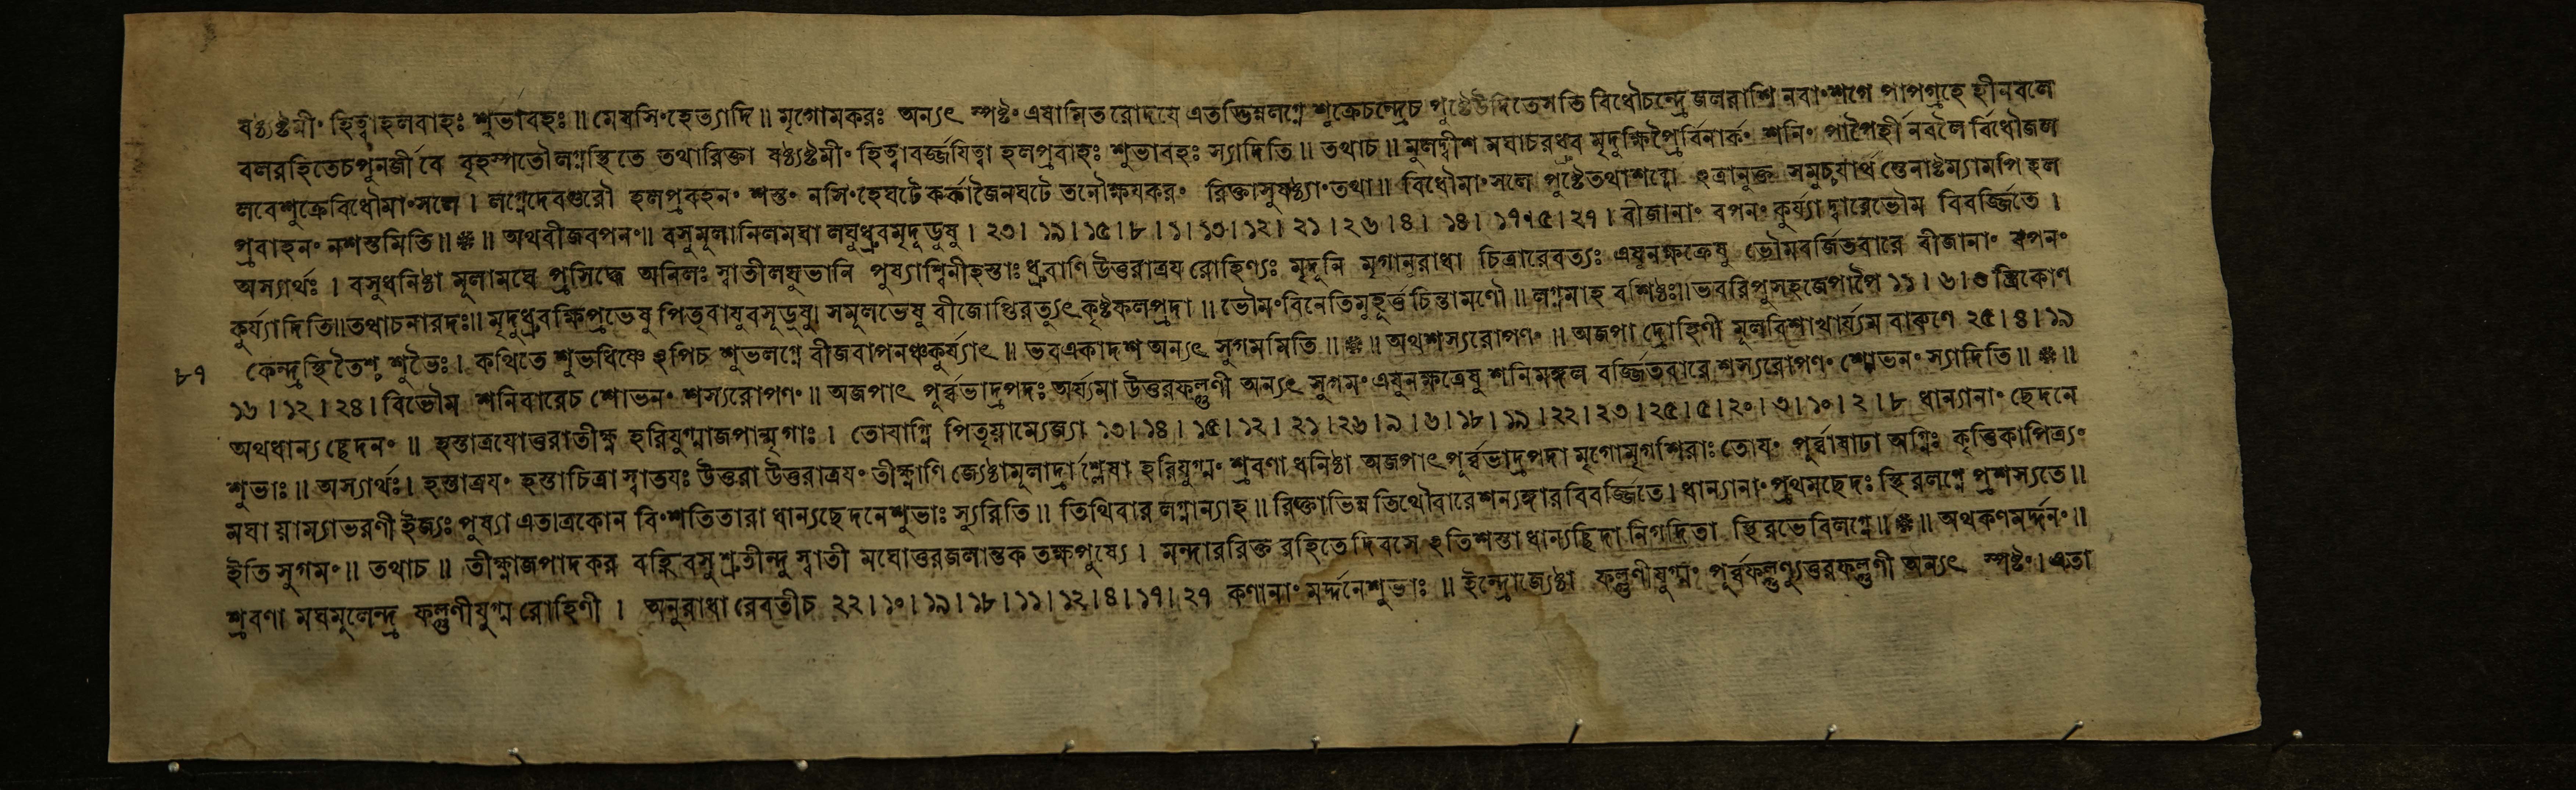 ষষ্ঠ্যষ্টমীং হিত্বাহলবাহঃ শুভাবহঃ॥ মেষসিংহেত্যাদি॥ মৃগোমকরঃ অন্যৎ স্পষ্টং এষামিতরোদয়ে এতদ্ভিন্নলগ্নে শুক্রেচন্দ্রেচ পুষ্টেউদিতেসতি বিধৌচন্দ্রে জলরাশি নবাংশগে পাপগ্রহে হীনবলে
বলরহিতেচপুনর্জীবে বৃহস্পতৌলগ্নস্থিতে তথারিক্তা ষষ্ঠ্যষ্টমীং হিত্বাবর্জ্জয়িত্বা হলপ্রবাহঃ শুভাবহঃ স্যাদিতি॥ তথাচ॥ মূলদ্বীশ মঘাচরধ্রুব মৃদুক্ষিপ্রৈর্বিনার্কং শনিং পাপৈর্হীনবলৈর্বিধৌজল
লবেশুক্রেবিধৌমাংসলে। লগ্নেদেবগুরৌ হলপ্রবহনং শস্তং নসিংহেঘটে কর্কাজৈনঘটে তনৌক্ষয়করং রিক্তাসুষষ্ঠ্যাং তথা॥ বিধৌমাংসলে পুষ্টেতথাশব্দো ঽত্রানুক্ত সমুচ্চয়ার্থস্তেনাষ্টম্যামপি হল
প্রবাহনং নশস্তমিতি॥ ❋ ॥ অথবীজবপনং॥ বসুমূলানিলমঘা লঘুধ্রুবমৃদূডুষু। ২৩। ১৯। ১৫। ৮। ১। ১৩। ১২। ২১। ২৬। ৪। ১৪। ১৭। ৫। ২৭। বীজানাং বপনং কুর্য্যাদ্বারেভৌম বিবর্জ্জিতে।
অস্যার্থঃ। বসুধনিষ্ঠা মূলামঘে প্রসিদ্ধে অনিলঃ স্বাতীলঘুভানি পুষ্যাশ্বিনীহস্তাঃ ধ্রুবাণি উত্তরাত্রয় রোহিণ্যঃ মৃদূনি মৃগানুরাধা চিত্রারেবত্যঃ এষুনক্ষত্রেষু ভৌমবর্জিতবারে বীজানাং বপনং
কুর্য্যাদিতি॥তথাচনারদঃ॥ মৃদুধ্রুবক্ষিপ্রভেষু পিতৃবায়ুবসূডুষু। সমূলভেষু বীজোপ্তিরত্যুৎকৃষ্টফলপ্রদা॥ ভৌমংবিনেতিমুহূর্ত্তচিন্তামণৌ॥ লগ্নমাহ বশিষ্ঠঃ॥ভবরিপুসহজেপাপৈ ১১। ৬। ৩ স্ত্রিকোণ
৮৭ কেন্দ্রস্থিতৈশ্চ শুভৈঃ। কথিতে শুভধিষ্ণে ঽপিচ শুভলগ্নে বীজবাপনঞ্চকুর্য্যাৎ॥ ভবএকাদশ অন্যৎ সুগমমিতি॥ ❋ ॥ অথশস্যরোপণং॥ অজপাদ্রোহিণী মূলবিশাখার্য্যম বারুণে ২৫। ৪। ১৯
১৬। ১২। ২৪। বিভৌম শনিবারেচ শোভনং শস্যরোপণং॥ অজপাৎ পূর্ব্বভাদ্রপদঃ অর্য্যমা উত্তরফল্গুণী অন্যৎ সুগমং এষুনক্ষত্রেষু শনিমঙ্গল বর্জ্জিতবারে শস্যরোপণং শোভনং স্যাদিতি॥ ❋ ॥
অথধান্যছেদনং॥ হস্তাত্রয়োত্তরাতীক্ষ্ণ হরিযুগ্মাজপান্মৃগাঃ। তোয়াগ্নি পিতৃয়াম্যেজ্যা ১৩। ১৪। ১৫। ১২। ২১। ২৬। ৯। ৬। ১৮। ১৯। ২২। ২৩। ২৫। ৫। ২০। ৩। ১০। ২। ৮ ধান্যানাং ছেদনে
শুভাঃ॥ অস্যার্থঃ। হস্তাত্রয়ং হস্তাচিত্রা স্বাতয়ঃ উত্তরা উত্তরাত্রয়ং তীক্ষ্ণাণি জ্যেষ্ঠামূলার্দ্রাশ্লেষা হরিযুগ্মং শ্রবণা ধনিষ্ঠা অজপাৎ পূর্ব্বভাদ্রপদা মৃগোমৃগশিরাঃ তোয়ং পূর্ব্বাষাঢা অগ্নিঃ কৃত্তিকাপিত্র্যং
মঘা য়াম্যাভরণী ইজ্যঃ পুষ্যা এতাত্রকোন বিংশতিতারা ধান্যছেদনেশুভাঃ স্যুরিতি॥ তিথিবার লগ্নান্যাহ॥ রিক্তাভিন্ন তিথৌবারেশন্যঙ্গারবিবর্জ্জিতে। ধান্যানাং প্রথমছেদঃ স্থিরলগ্নে প্রশস্যতে॥
ইতি সুগমং॥ তথাচ॥ তীক্ষ্ণাজপাদকর বহ্নিবসুশ্রুতীন্দু স্বাতী মঘোত্তরজলান্তক তক্ষপুষ্যে। মন্দাররিক্ত রহিতেদিবসে ঽতিশস্তা ধান্যছিদা নিগদিতা স্থিরভেবিলগ্নে॥ ❋ ॥ অথকণমর্দ্দনং॥
শ্রবণা মঘমূলেন্দ্র ফল্গুণীযুগ্ম রোহিণী। অনুরাধা রেবতীচ ২২। ১০। ১৯। ১৮। ১১। ১২। ৪। ১৭। ২৭ কণানাং মর্দ্দনেশুভাঃ॥ ইন্দ্রোজ্যেষ্ঠা ফল্গুণীযুগ্মং পূর্ব্বফল্গুণ্যুত্তরফল্গুণী অন্যৎ স্পষ্টং। এতা